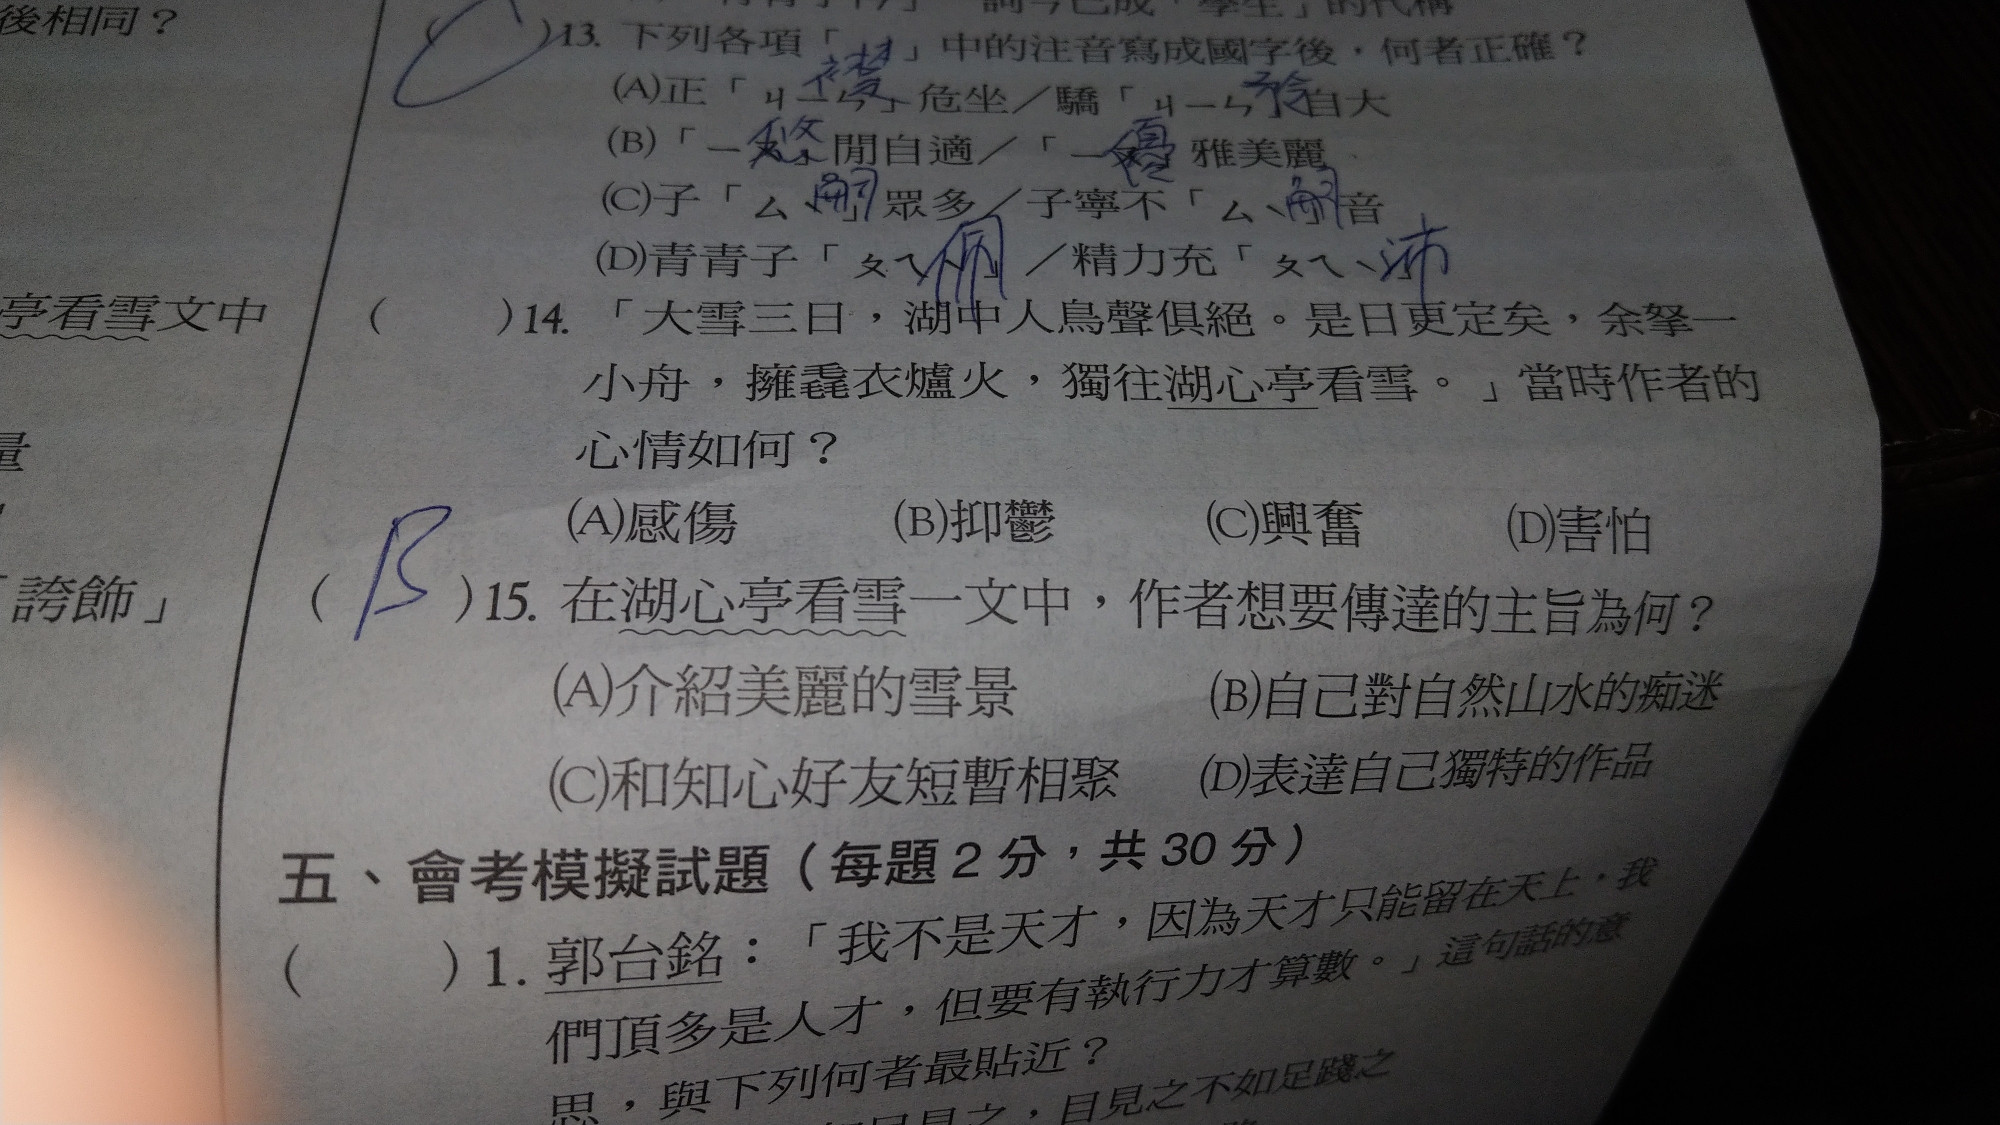 後相同？
亭看雪文中
量
「誇飾」
(C)13. 下列各項「 」中的注音寫成國字後，何者正確？
(A)正「ㄐㄧㄣ」襟危坐／驕「ㄐㄧㄣ矜自大
(B)「ㄧ悠」閒自適／「ㄧ優雅美麗
(C)子「ㄙˋ嗣」眾多／子寧不「ㄙˋ嗣音
(D)青青子「ㄆㄟˋ佩」／精力充「ㄆㄟˋ沛
( )14. 「大雪三日，湖中人鳥聲俱絕。是日更定矣，余拏一
小舟，擁毳衣爐火，獨往湖心亭看雪。」當時作者的
心情如何？
(A)感傷 (B)抑鬱 (C)興奮 (D)害怕
(B)15. 在湖心亭看雪一文中，作者想要傳達的主旨為何？
(A)介紹美麗的雪景 (B)自己對自然山水的痴迷
(C)和知心好友短暫相聚 (D)表達自己獨特的作品
五、會考模擬試題（每題2分，共30分）
( )1. 郭台銘：「我不是天才，因為天才只能留在天上，我
們頂多是人才，但要有執行力才算數。」這句話的意
思，與下列何者最貼近？
目見之不如足踐之